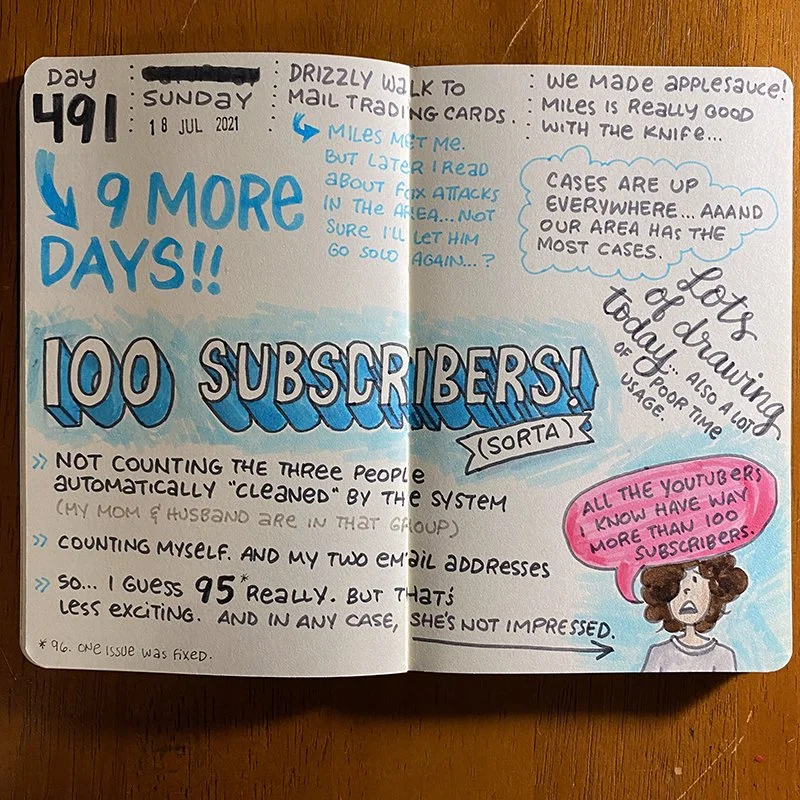 DAY
491
SUNDAY
18 JUL 2021
DRIZZLY WALK TO
MAIL TRADING CARDS.
MILES MET ME.
BUT LATER I READ
ABOUT FOX ATTACKS
IN THE AREA... NOT
SURE I'LL LET HIM
GO SOLO AGAIN...?
WE MADE APPLESAUCE!
MILES IS REALLY GOOD
WITH THE KNIFE...
9 MORE
DAYS!!
CASES ARE UP
EVERYWHERE... AAAND
OUR AREA HAS THE
MOST CASES.
Lots
of drawing
today... ALSO A LOT
OF POOR TIME
USAGE.
100 SUBSCRIBERS!
(SORTA)
» NOT COUNTING THE THREE PEOPLE
AUTOMATICALLY "CLEANED" BY THE SYSTEM
(MY MOM & HUSBAND ARE IN THAT GROUP)
» COUNTING MYSELF. AND MY TWO EMAIL ADDRESSES
» SO... I GUESS 95* REALLY. BUT THAT'S
LESS EXCITING. AND IN ANY CASE, SHE'S NOT IMPRESSED.
* 96. ONE ISSUE WAS FIXED.
ALL THE YOUTUBERS
I KNOW HAVE WAY
MORE THAN 100
SUBSCRIBERS.